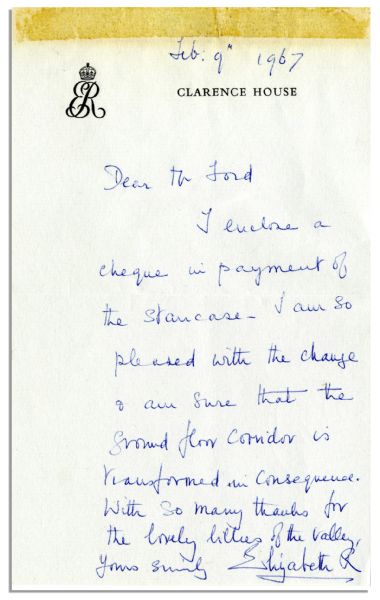 Feb: 9th 1967
ER
CLARENCE HOUSE
Dear Mr Ford
I enclose a
cheque in payment of
the staircase - I am so
pleased with the change
& am sure that the
ground floor corridor is
transformed in consequence.
With so many thanks for
the lovely lillies of the valley,
Yours sincerely Elizabeth R